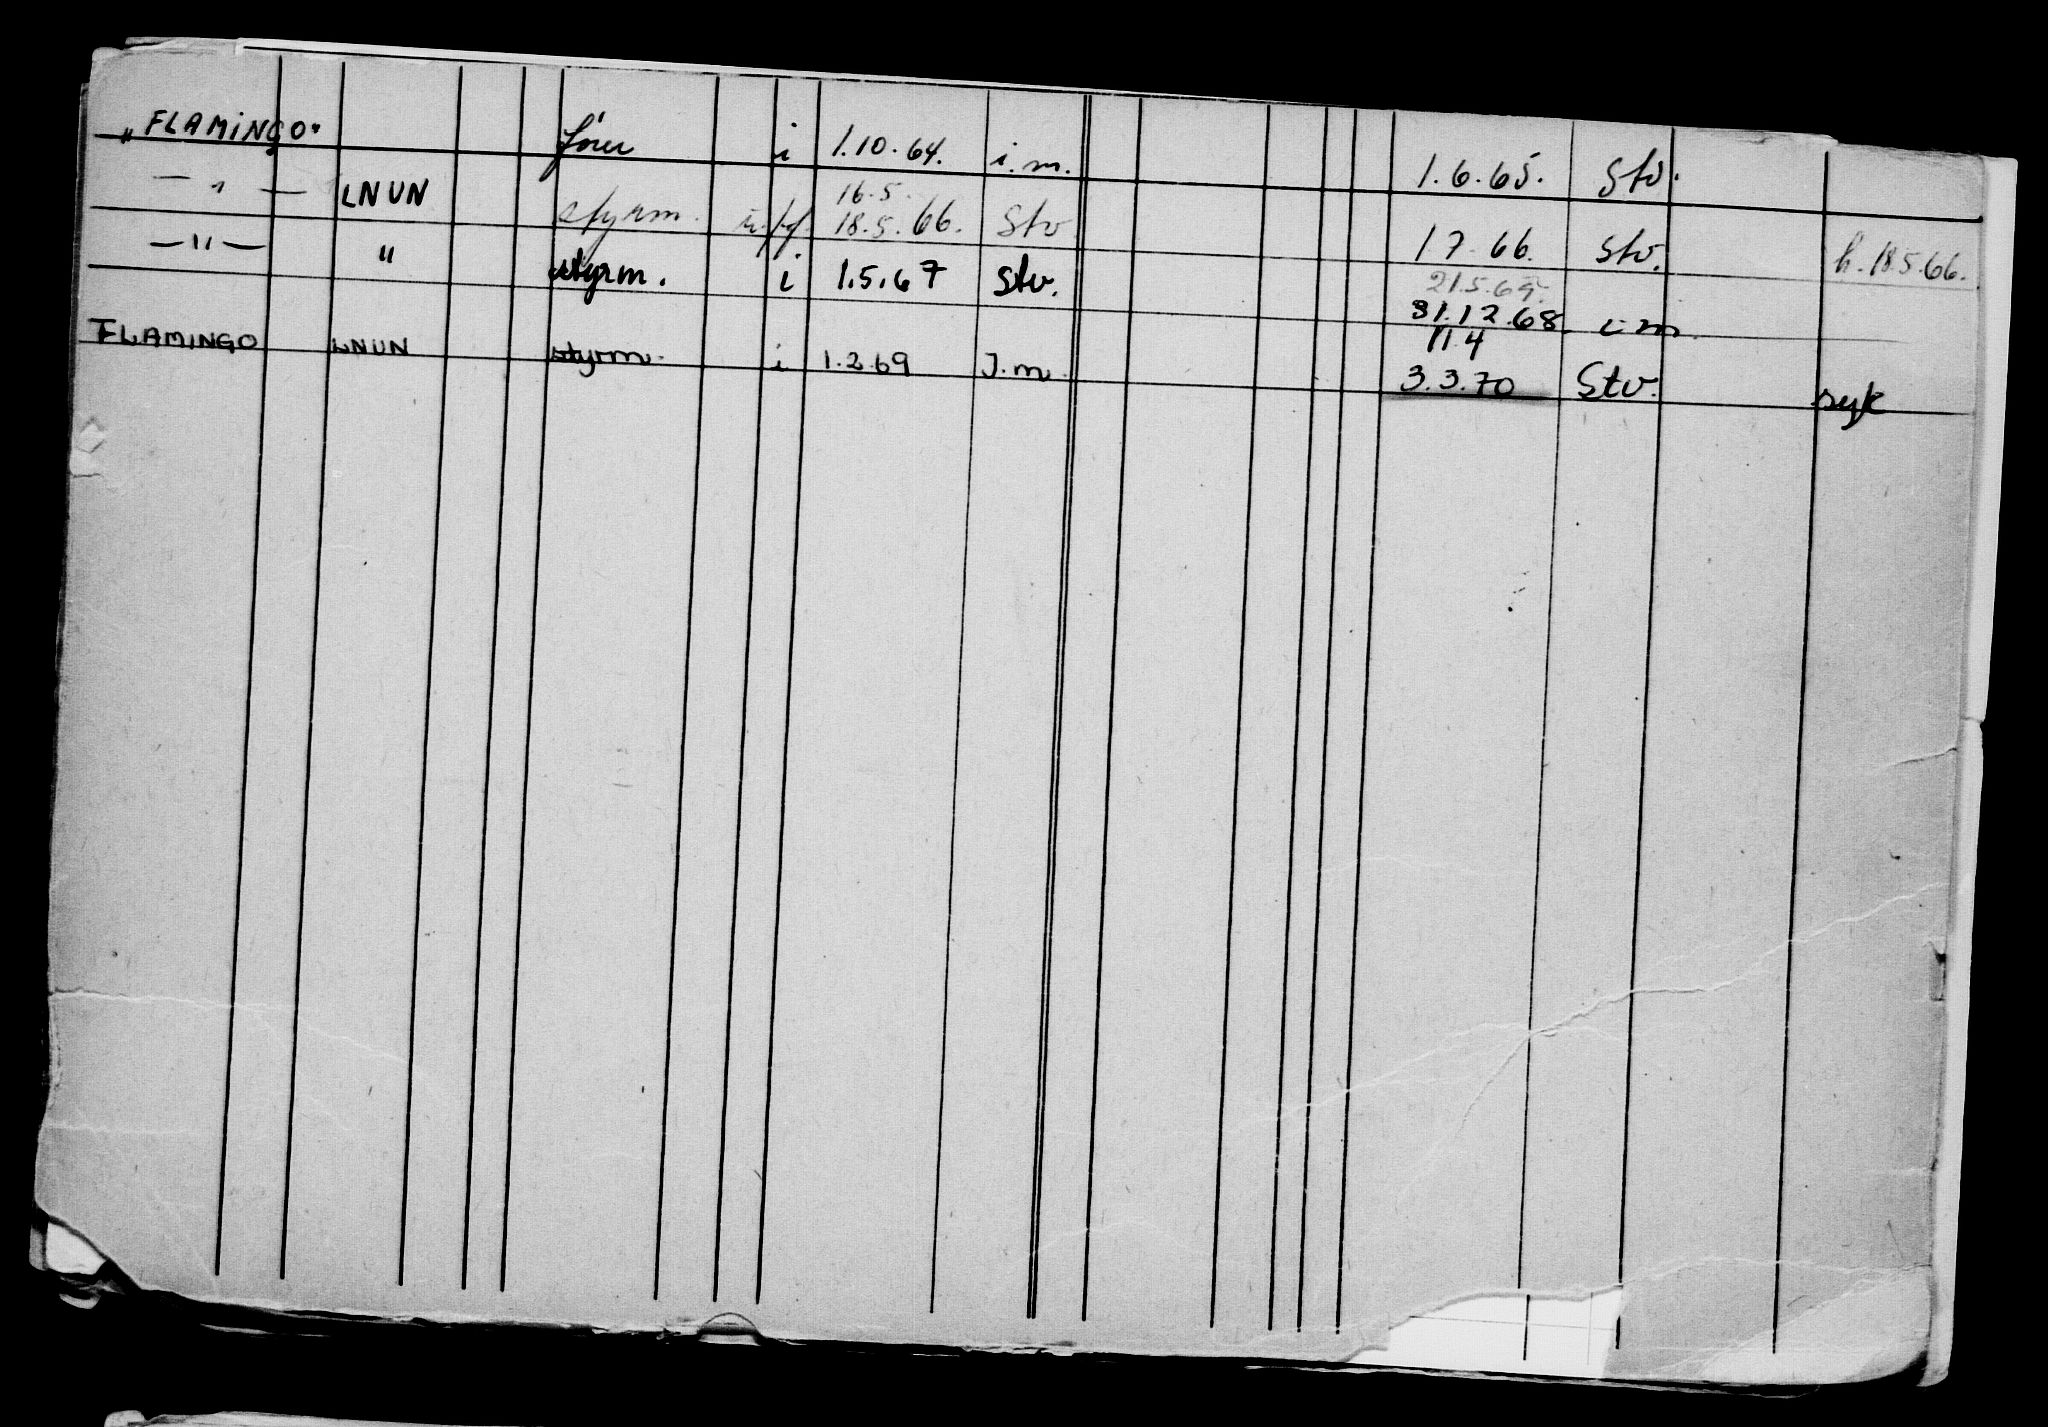 „FLAMINGO" fører i 1.10.64. i.m. 1.6.65. Stv.
16.5.
— " — LNUN styrm. 18.5.66. Stv 1.7.66. Stv. h. 18.5.66.
— " — " styrm. i 1.5.67 Stv. 31.12.68 i.m.
11.4
FLAMINGO LNUN styrm. i 1.2.69 I.m. 3.3.70 Stv. syk